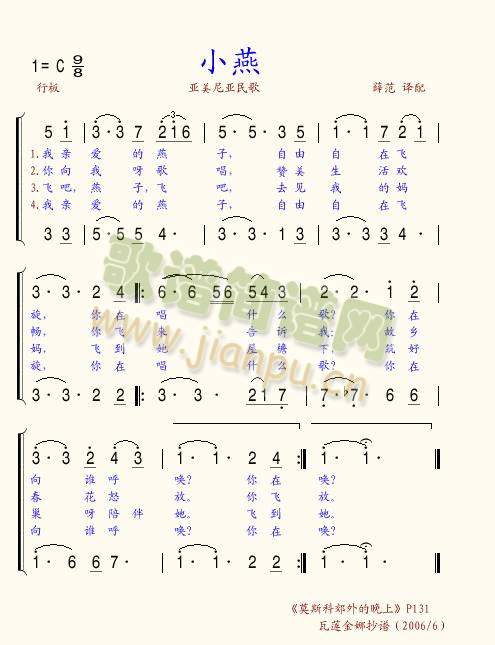 小燕
1=C 9/8
行板 亚美尼亚民歌 薛范 译配
5 i 3·3 7 2i6 5·5·35 i·i·17 2i
1.我亲 爱 的 燕 子, 自由 自 在飞
2.你向 我 呀歌 唱, 赞美 生 活欢
3.飞吧, 燕 子,飞 吧, 去见 我 的妈
4.我亲 爱 的 燕 子, 自由 自 在飞
3 3 5·5 5 4 3·3·1 3 3·3·3 3 4·
3·3·2 4 6·6 56 56 543 2·2·1 2
旋, 你在 唱 什 么 歌? 你在
畅, 你飞 来 告 诉 我: 故乡
妈, 飞到 她 屋 檐 下, 筑好
旋, 你在 唱 什 么 歌? 你在
3·3·2 2 3·3·3· 217 7·7·6 6
3·3 2 4 3 i·i·2 4 i·i·
向 谁 呼 唤? 你在 唤?
春 花 怒 放。 你飞 放。
巢 呀 陪 伴 她。 飞到 她。
向 谁 呼 唤? 你在 唤?
i·6 6 7· i·i·2 2 i·i·
《莫斯科郊外的晚上》P131
瓦莲金娜抄谱(2006/6)
歌谱简谱网
www.jianpu.cn